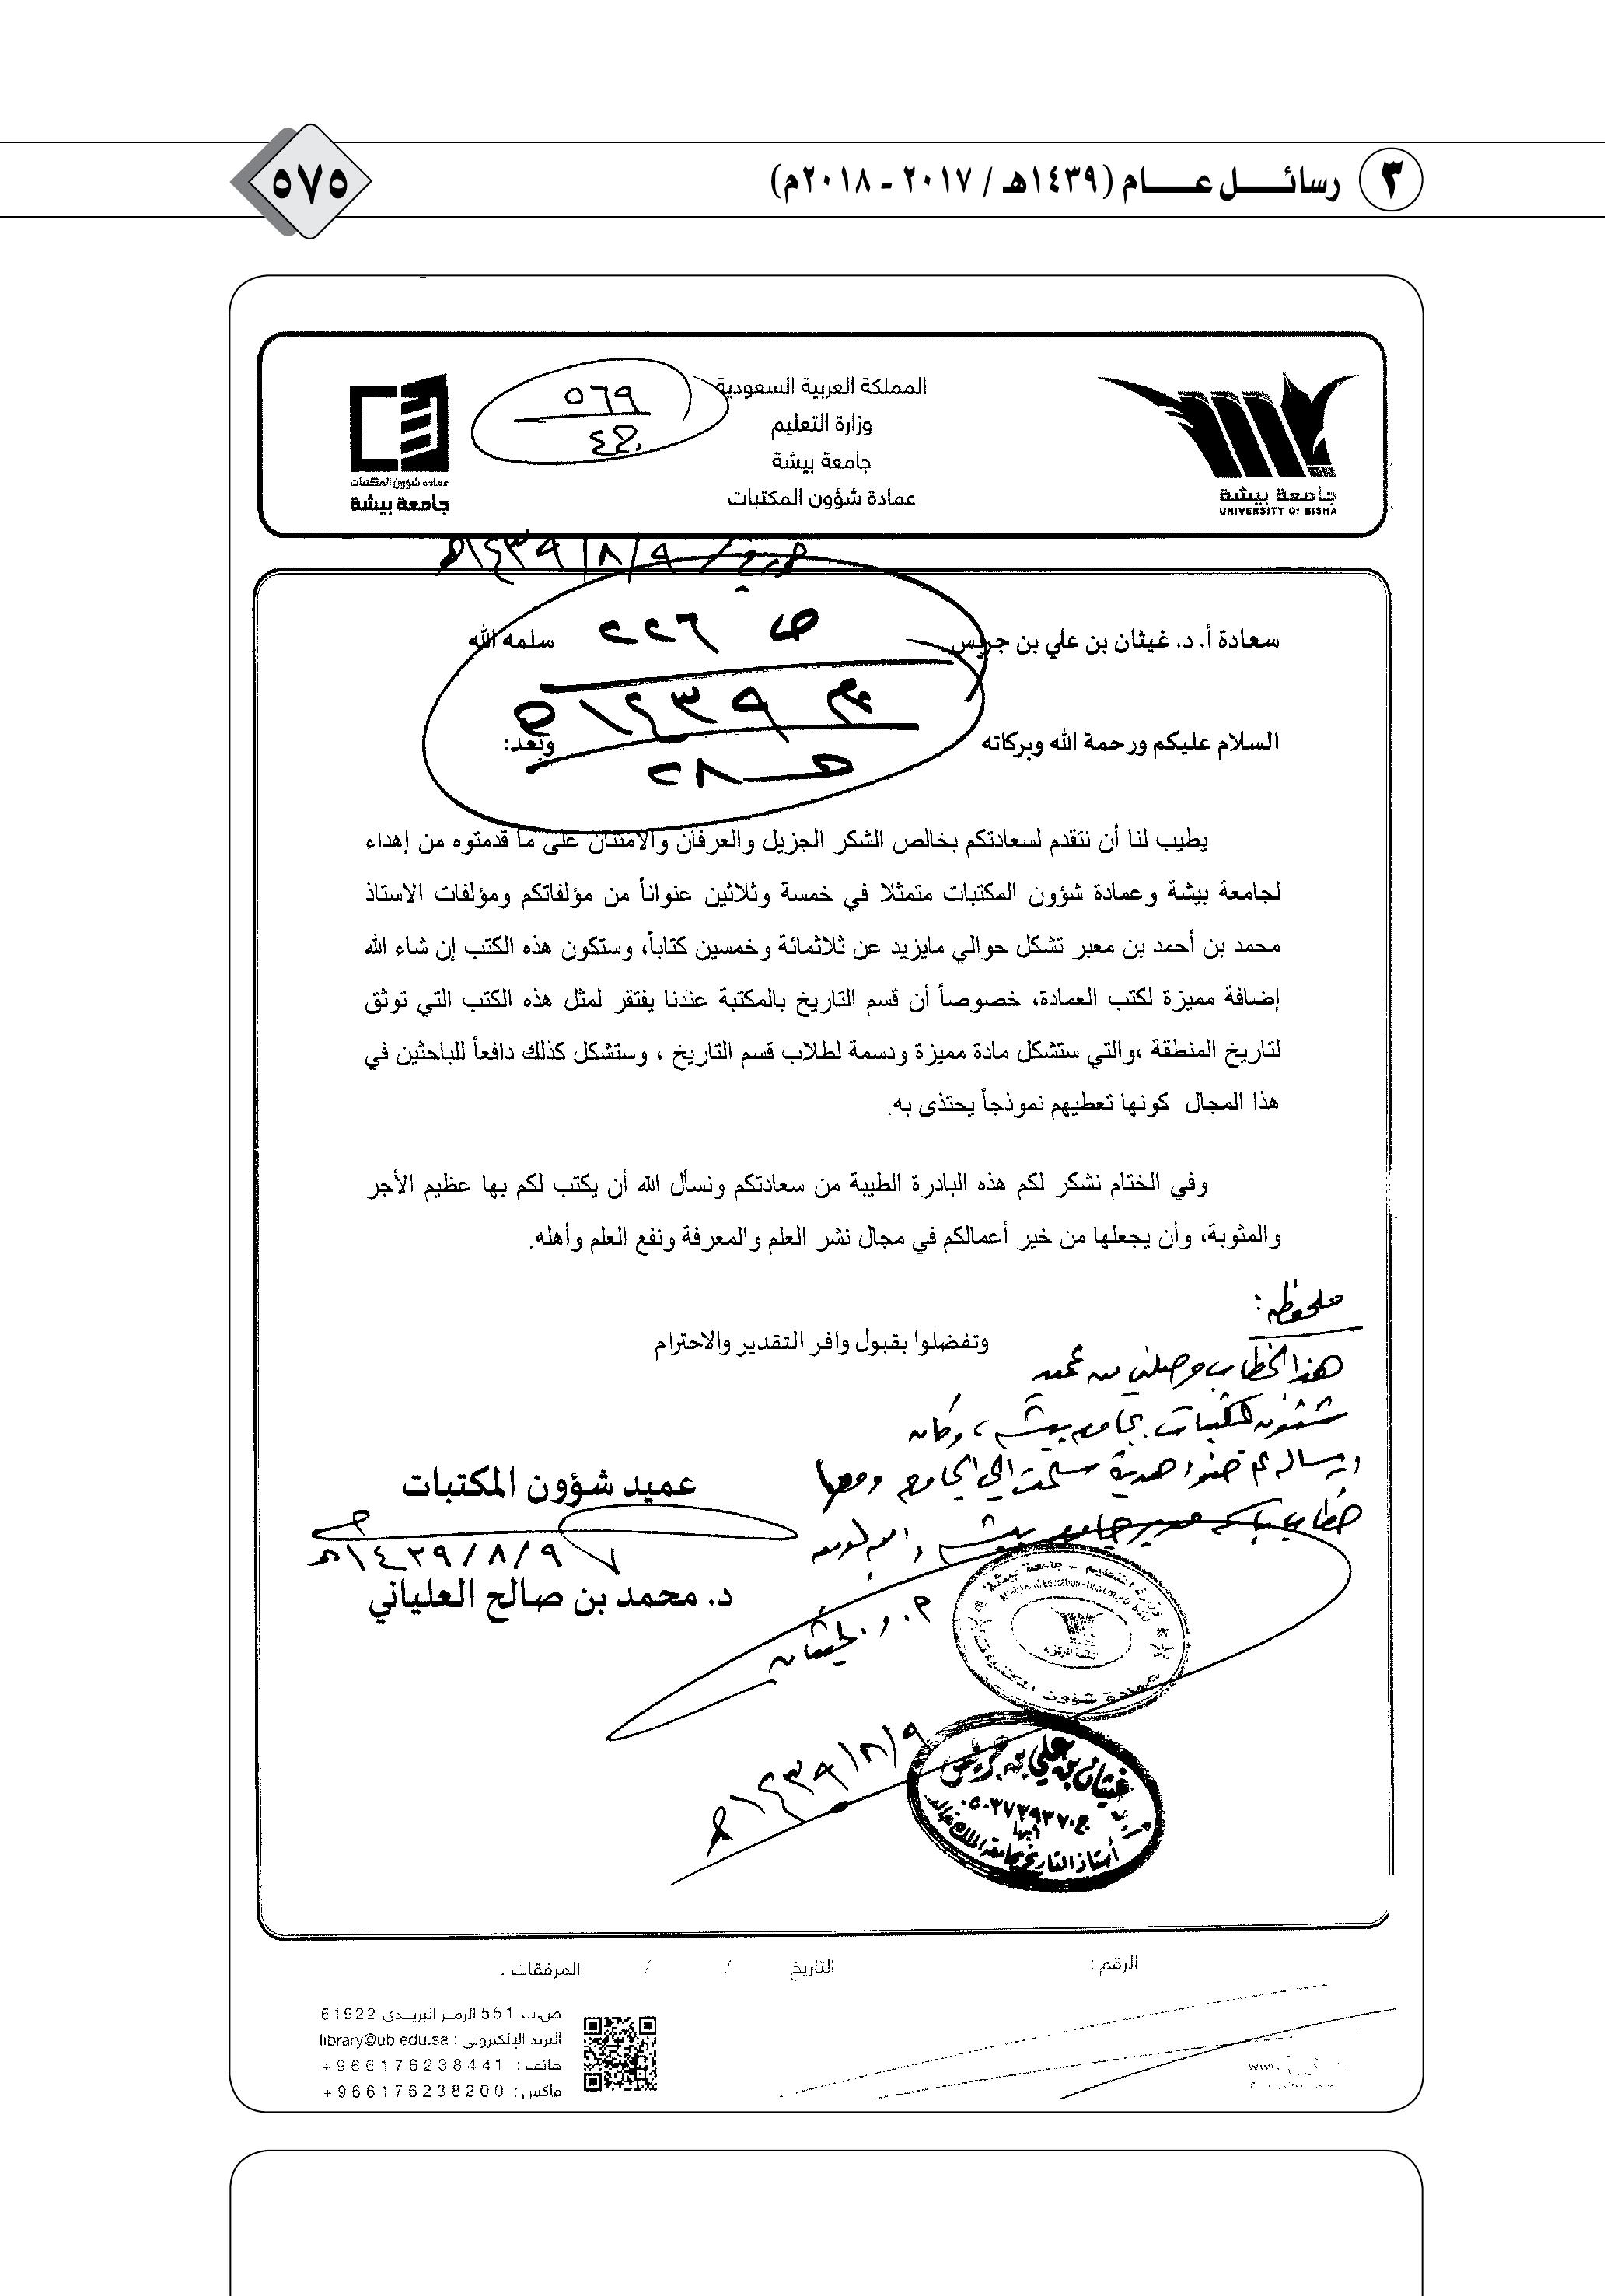 ٣ رسائـــــل عـــــام (١٤٣٩هـ / ٢٠١٧ - ٢٠١٨م)
٥٧٥
المملكة العربية السعودية
وزارة التعليم
جامعة بيشة
عمادة شؤون المكتبات
جامعة بيشة
UNIVERSITY OF BISHA
عمادة شؤون المكتبات
جامعة بيشة
٥٦٩
١٤٣٩/٨/٩هـ
ص ٢٢٦
١٤٣٩هـ
سعادة أ. د. غيثان بن علي بن جريس سلمه الله
السلام عليكم ورحمة الله وبركاته وبعد:
يطيب لنا أن نتقدم لسعادتكم بخالص الشكر الجزيل والعرفان والامتنان على ما قدمتوه من إهداء
لجامعة بيشة وعمادة شؤون المكتبات متمثلا في خمسة وثلاثين عنواناً من مؤلفاتكم ومؤلفات الاستاذ
محمد بن أحمد بن معبر تشكل حوالي مايزيد عن ثلاثمائة وخمسين كتاباً، وستكون هذه الكتب إن شاء الله
إضافة مميزة لكتب العمادة، خصوصاً أن قسم التاريخ بالمكتبة عندنا يفتقر لمثل هذه الكتب التي توثق
لتاريخ المنطقة ،والتي ستشكل مادة مميزة ودسمة لطلاب قسم التاريخ ، وستشكل كذلك دافعاً للباحثين في
هذا المجال كونها تعطيهم نموذجاً يحتذى به.
وفي الختام نشكر لكم هذه البادرة الطيبة من سعادتكم ونسأل الله أن يكتب لكم بها عظيم الأجر
والمثوبة، وأن يجعلها من خير أعمالكم في مجال نشر العلم والمعرفة ونفع العلم وأهله.
وتفضلوا بقبول وافر التقدير والاحترام
ملحوظة:
هذا الخطاب وصلني من عميد
شئون المكتبات بجامعة بيشة، وكان
خطاب باسم مدير جامعة بيشة
عميد شؤون المكتبات
١٤٣٩/٨/٩هـ
د. محمد بن صالح العلياني
١٤٣٩/٨/٩هـ
غيثان بن علي بن جريس
ج.٠٥٠٣٧٣٩٣٧٠
أبها
أستاذ التاريخ بجامعة الملك خالد
الرقم :
التاريخ / /
المرفقات .
ص.ب 551 الرمز البريدي 61922
البريد الإلكتروني : library@ub.edu.sa
هاتف : 966176238441+
فاكس : 966176238200+